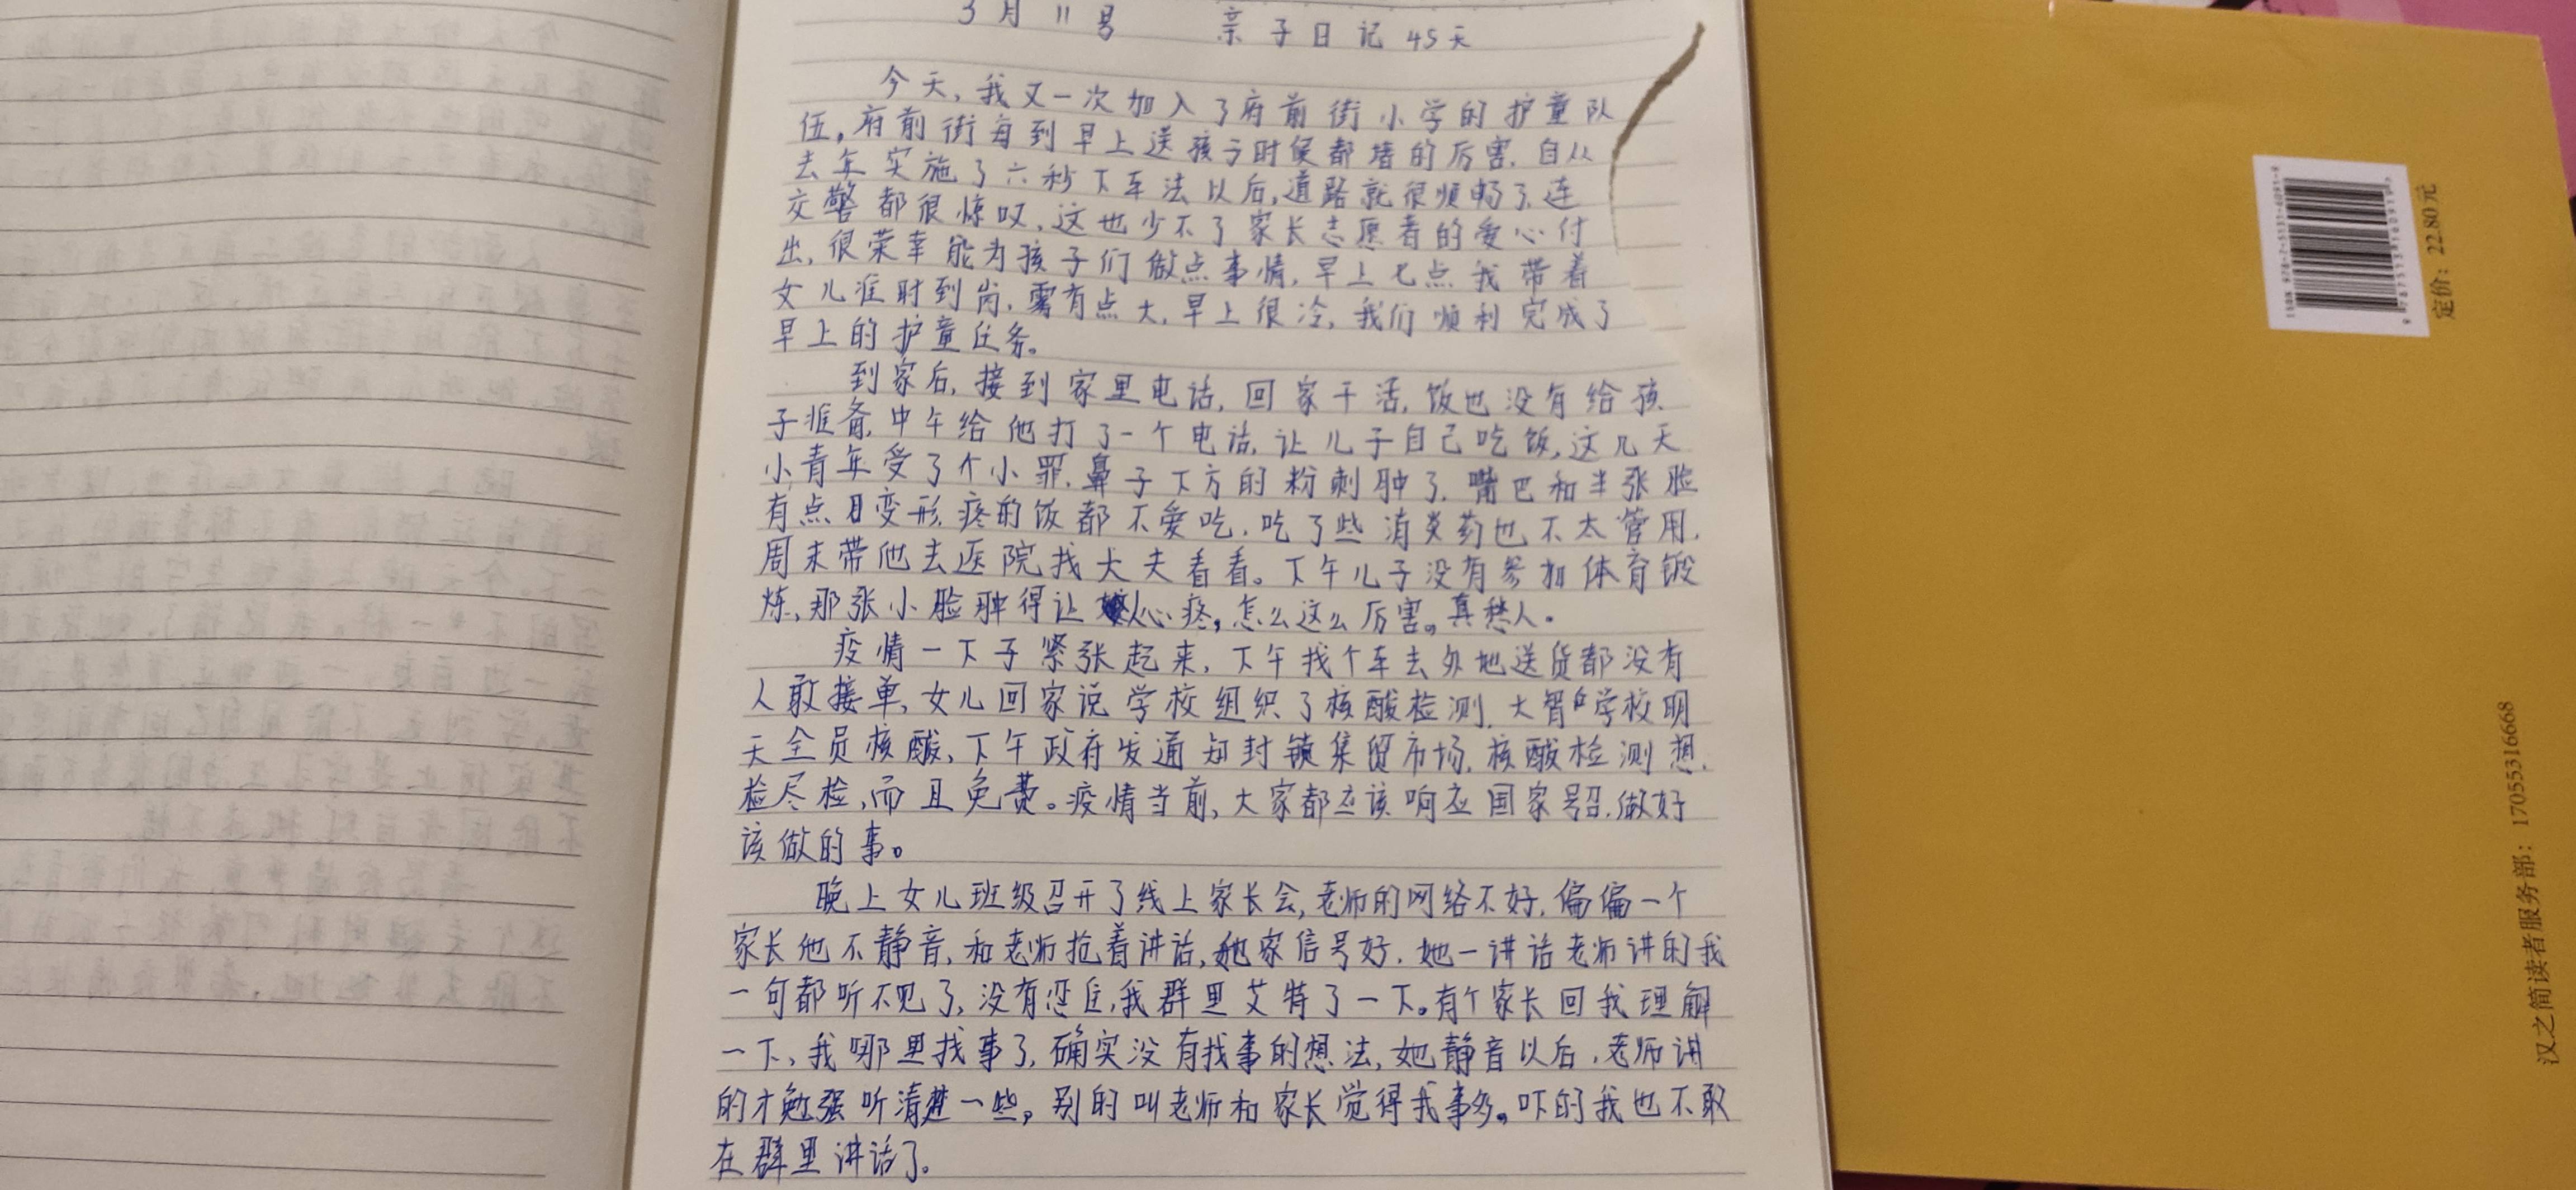 3月11号 亲子日记45天
今天,我又一次加入了府前街小学的护童队
伍。府前街每到早上送孩子时候都堵的厉害.自从
去年实施了六秒下车法以后,道路就很顺畅了.连
交警都很惊叹,这也少不了家长志愿者的爱心付
出,很荣幸能为孩子们做点事情,早上七点我带着
女儿准时到岗,雾有点大,早上很冷,我们顺利完成了
早上的护童任务。
到家后,接到家里电话,回家干活,饭也没有给孩
子准备,中午给他打了一个电话,让儿子自己吃饭,这几天
小青年受了个小罪,鼻子下方的粉刺肿了.嘴巴和半张脸
有点变形,疼的饭都不爱吃,吃了些消炎药也不太管用,
周末带他去医院找大夫看看。下午儿子没有参加体育锻
炼,那张小脸肿得让人心疼,怎么这么厉害。真愁人.
疫情一下子紧张起来,下午找个车去外地送货都没有
人敢接单,女儿回家说学校组织了核酸检测,大智学校明
天全员核酸,下午政府发通知封锁集贸市场,核酸检测想
检尽检,而且免费。疫情当前,大家都应该响应国家号召,做好
该做的事。
晚上女儿班级召开了线上家长会,老师的网络不好,偏偏一个
家长他不静音,和老师抢着讲话,她家信号好.她一讲话老师讲的我
一句都听不见了,没有忍住,我群里艾特了一下。有个家长回我理解
一下,我哪里找事了,确实没有找事的想法,她静音以后,老师讲
的才勉强听清楚一些,别的叫老师和家长觉得我事多。吓的我也不敢
在群里讲话了。
ISBN 978-7-5131-6091-9
9 787513 160919
定价:22.80元
汉之简读者服务部:17055316668